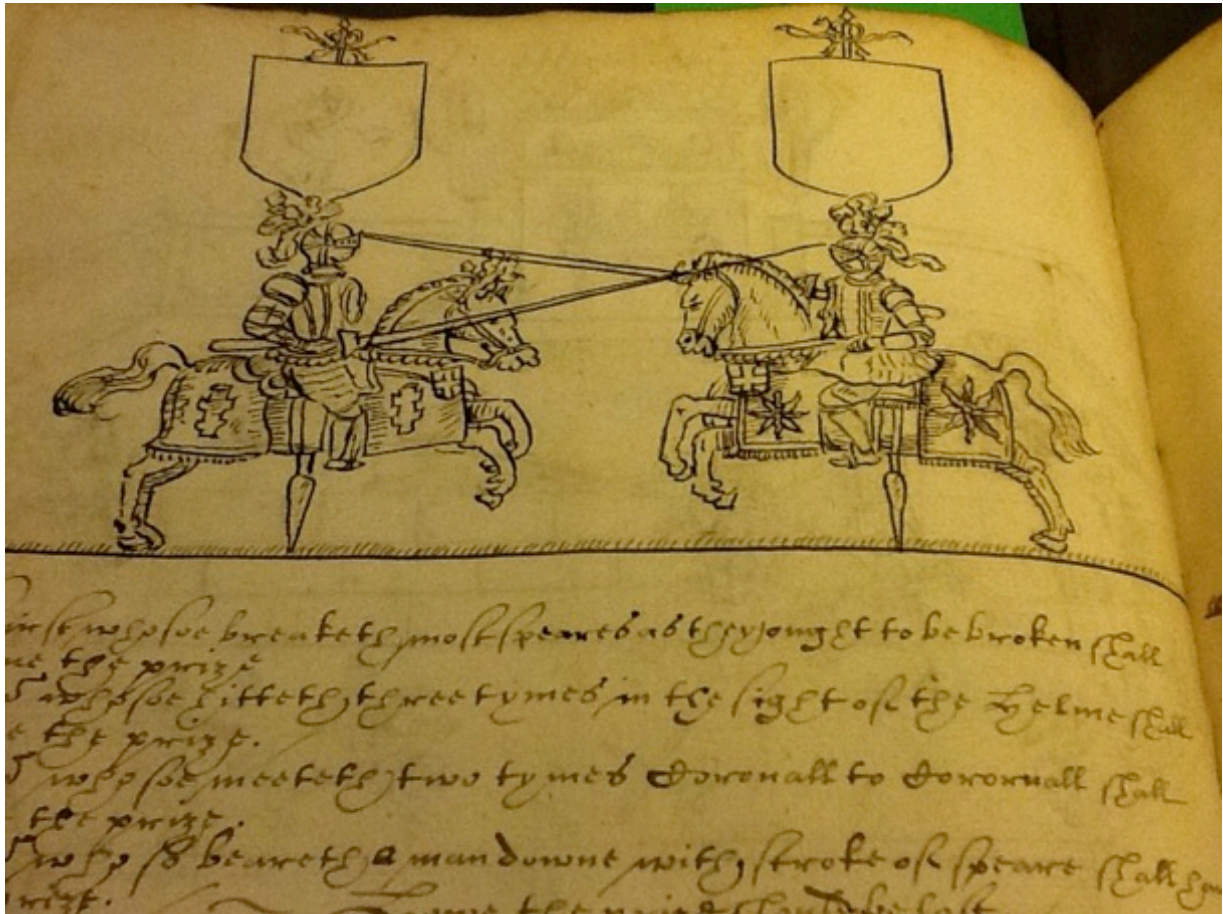 first whosoe breaketh most speares as they ought to be broken shall
the prize
whosoe hitteth three tymes in the sight of the Helme shall
the prize.
whosoe meeteth two tymes Coronall to Coronall shall
the prize.
who so beareth a man downe with stroke of speare shall
prize.
the prize